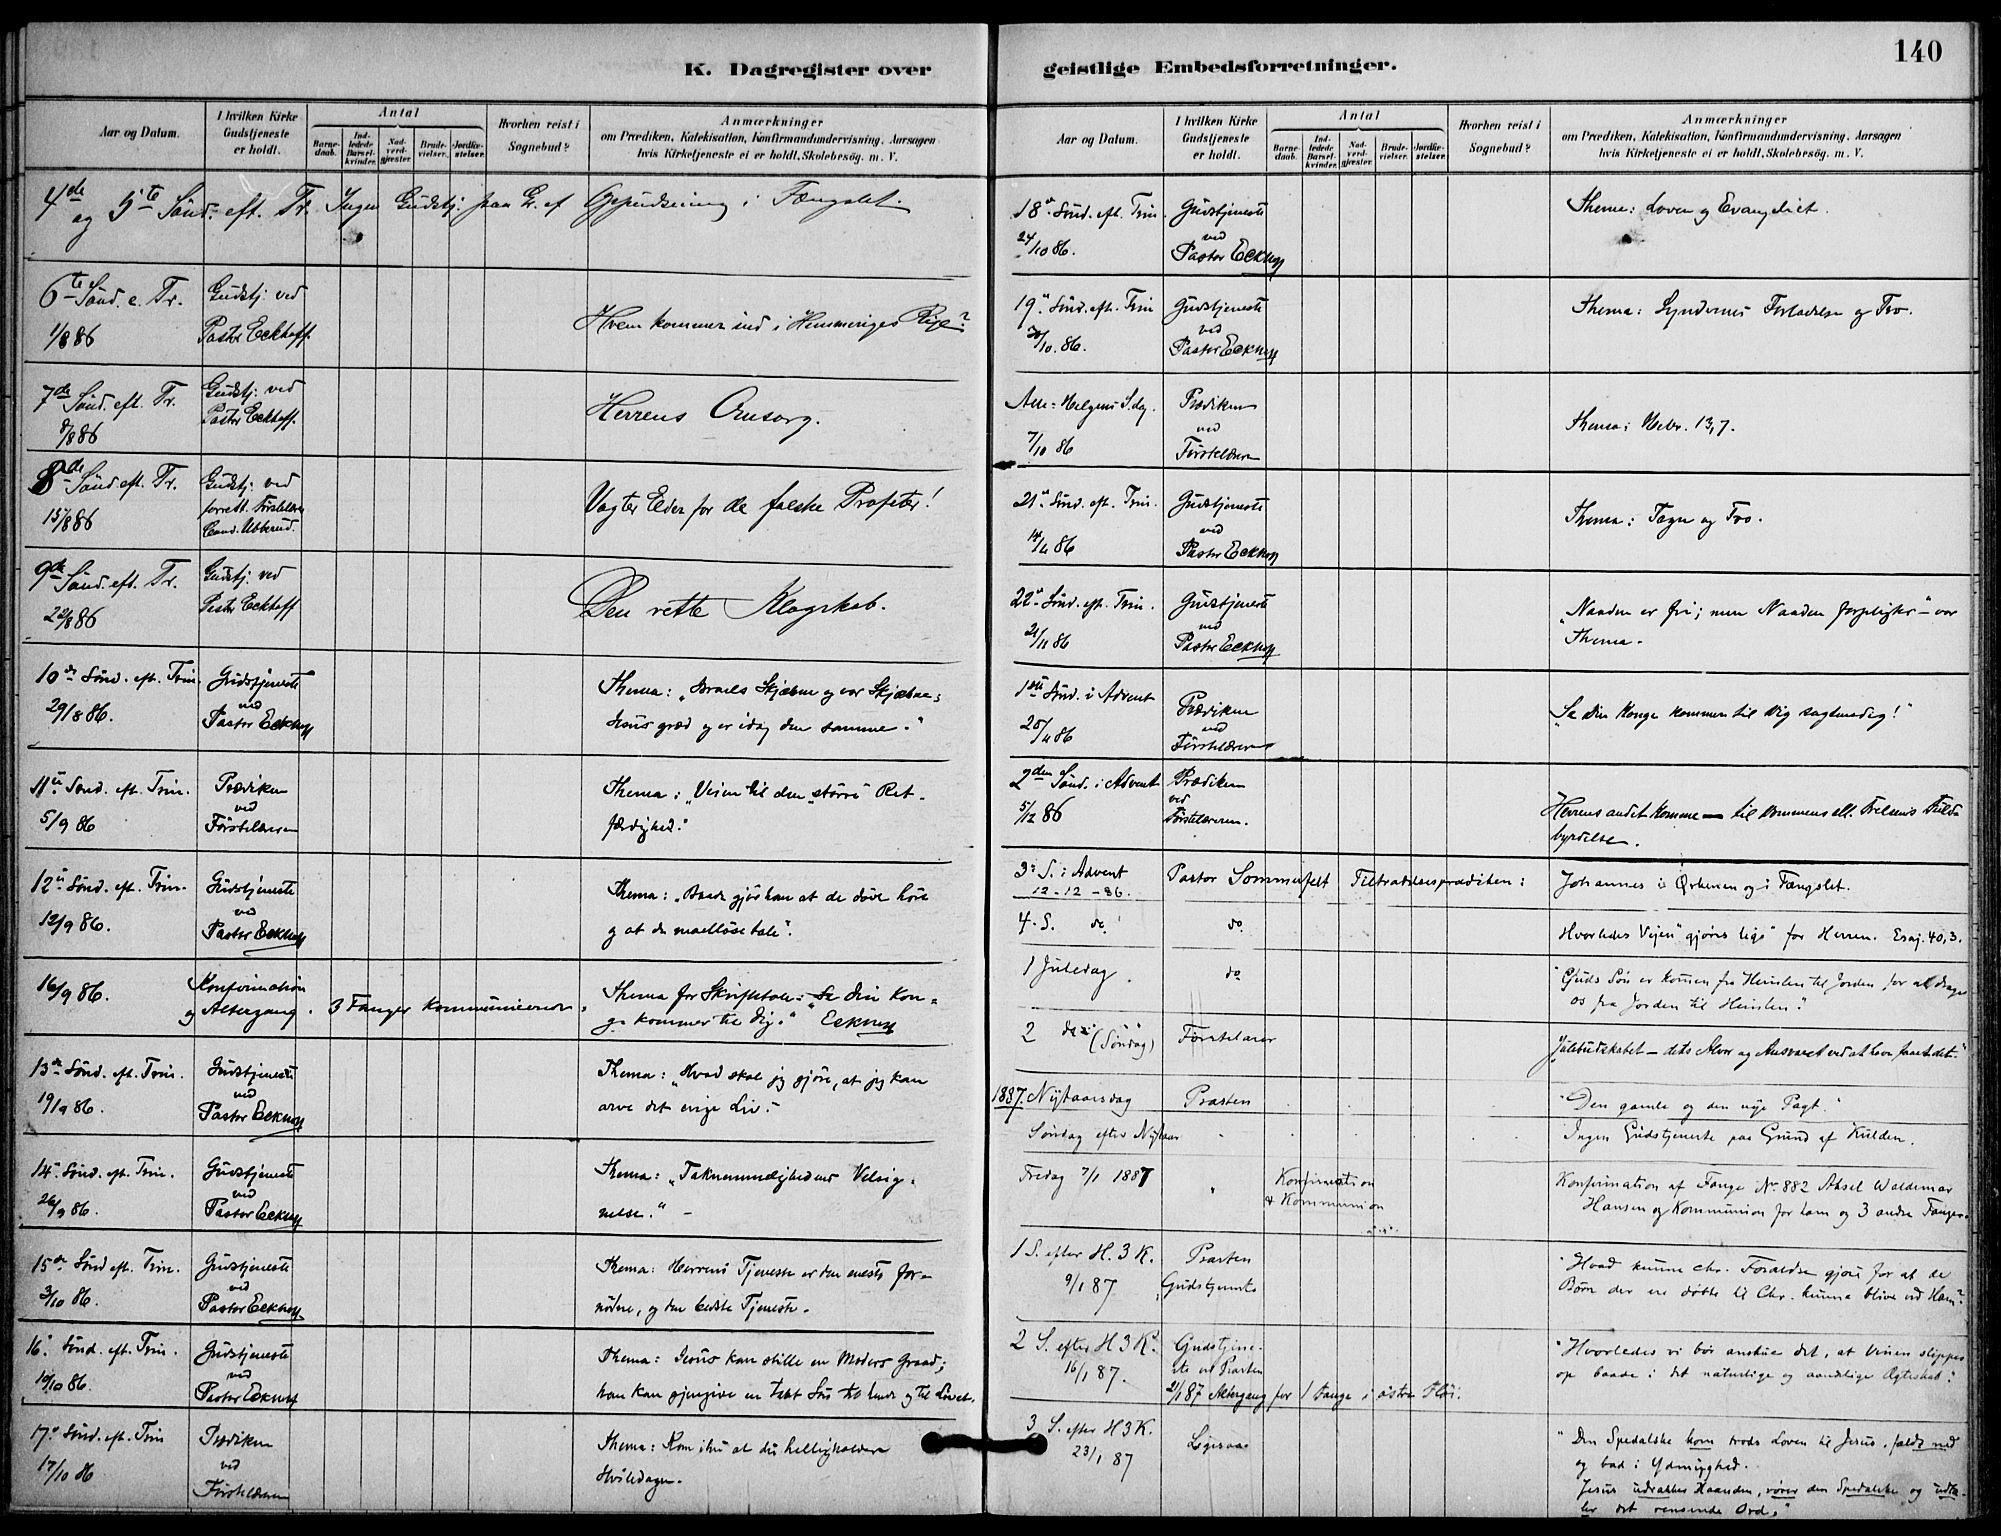 140
K. Dagregister over
geistlige Embedsforretninger.
Aar og Datum.
I hvilken Kirke
Gudstjeneste
er holdt.
Antal
Barne-
daab.
Ind-
ledede
Barsel-
kvinder.
Nad-
verd-
gjester.
Brude-
vielser.
Jordfæ-
stelser.
Hvorhen reist i
Sognebud?
Anmærkninger
om Prædiken, Katekisation, Konfirmandundervisning, Aarsagen
hvis Kirketjeneste ei er holdt, Skolebesøg. m. V.
4de og 5te Sønd. eft. Tr. Ingen Gudstj. paa Gr. af Oppudsning i Fængslet.
6te Sønd. e. Tr.
1/8 86
Gudstj. ved
Pastor Eckhoff.
Hvem kommer ind i Himmeriges Rige?
7de Sønd. eft. Tr.
8/8 86
Gudstj. ved
Pastor Eckhoff.
Herrens Omsorg.
8de Sønd eft. Tr.
15/8 86
Gudstj. ved
forrett. Førstelærer
Cand. Ubberud.
Vogter Eder for de falske Profeter!
9de Sønd. eft. Tr.
22/8 86
Gudstj. ved
Pastor Eckhoff
Den rette Klogskab.
10de Sønd. eft. Trin.
29/8 86.
Gudstjeneste
ved
Pastor Eckhoff
Thema: "Israels Skjæbne og vor Skjæbne;
Jesus græd og er idag den samme."
11te Sønd. eft. Trin.
5/9 86
Prædiken
ved
Førstelæreren
Thema: "Veien til den "større" Ret-
færdighed."
12te Sønd. eft. Trin.
12/9 86.
Gudstjeneste
ved
Pastor Eckhoff
Thema: "Baade gjør han at de døve høre
og at de maalløse tale".
16/9 86.
Konfirmation
og Altergang.
3 Fanger kommunicerer.
Thema for Skriftetale: "Se din Kon-
ge kommer til dig." Eckhoff
13de Sønd. eft. Trin.
19/9 86.
Gudstjeneste
ved
Pastor Eckhoff
Thema: "Hvad skal jeg gjøre, at jeg kan
arve det evige Liv."
14de Sønd. eft. Trin.
26/9 86.
Gudstjeneste
ved
Pastor Eckhoff
Thema: "Taknemmelighedens Velsig-
nelse." -
15de Sønd eft. Trin.
3/10 86.
Gudstjeneste
ved
Pastor Eckhoff
Thema: Herrens Tjeneste er den eneste for-
nødne, og den bedste Tjeneste.
16. Sønd. eft. Trin.
10/10 86.
Gudstjeneste
ved
Pastor Eckhoff
Thema: Jesus kan stille en Moders Graad;
han kan gjengive en tabt Søn til hende og til Livet.
17. Sønd. eft. Trin
17/10 86
Prædiken
ved
Førstelæreren
Thema: Kom ihu at du helligholder
Hviledagen.
Aar og Datum.
I hvilken Kirke
Gudstjeneste
er holdt.
Antal
Barne-
daab.
Ind-
ledede
Barsel-
kvinder.
Nad-
verd-
gjester.
Brude-
vielser.
Jordfæ-
stelser.
Hvorhen reist i
Sognebud?
Anmærkninger
om Prædiken, Katekisation, Konfirmandundervisning, Aarsagen
hvis Kirketjeneste ei er holdt, Skolebesøg. m. V.
18de Sønd. eft. Trin.
24/10 86.
Gudstjeneste
ved
Pastor Eckhoff
Thema: Loven og Evangeliet.
19de Sønd. eft. Trin
/10. 86.
Gudstjeneste
ved
Pastor Eckhoff
Thema: Syndernes Forladelse og Tro.
Alle-Helgens S.dag.
7/10 86
Prædiken
ved
Førstelæreren
Thema: Hebr. 13,7.
21de Sønd. eft. Trin.
14/11 86
Gudstjeneste
ved
Pastor Eckhoff
Thema: Tegn og Tro.
22de Sønd. eft. Trin.
21/11 86
Gudstjeneste
ved
Pastor Eckhoff
"Naaden er fri; men Naaden forpligter" - var
Thema.
1ste Sønd. i Advent
28/11 86
Prædiken
ved
Førstelæreren
"Se Din Konge kommer til Dig sagtmodig!"
2den Sønd. i Advent
5/12 86
Prædiken
ved
Førstelæreren.
Herrens andet Komme - til Dommens ell. Frelsens Fuld-
byrdelse.
3. S. i Advent
12-12-86.
Pastor Sommerfelt Tiltrædelsesprædiken:
Johannes i Ørkenen og i Fængslet.
4. S. do
do
Hvorledes Vejen "gjøres lige" for Herren. Esaj. 40,3.
1 Juledag.
do
"Guds Søn er kommen fra Himlen til Jorden, for at drage
os fra Jorden til Himlen."
2 do (Søndag)
Førstelærer
"Julebudskabet - dets Alvor og Ansvaret ved at have faaet det."
1887. Nytaarsdag
Præsten
"Den gamle og den nye Pagt."
Søndag efter Nytaar
Ingen Gudstjeneste paa Grund af Kulden.
Fredag 7/1 1887
"
Konfirmation
& Kommunion
Konfirmation af Fange No. 882 Aksel Waldemar
Hansen og Kommunion for ham og 3 andre Fanger.
1 S. efter H. 3 K.
9/1 87
Præsten
Gudstjeneste
"Hvad kunne chr. Forældre gjøre for at de
Børn der ere døbte til Chr. kunne blive ved Ham?"
2 S. efter H 3 K.
16/1 87.
Gudstjene-
ste ved Præsten
"Hvorledes vi bør anskue det, at Vinen slippes
op baade i det naturlige og aandelige Ægteskab."
21/1 87 Altergang for 1 Fange i østre Fløi.
3 S. efter H 3 K.
23/1 87
Ligesaa
"Den Spedalske kom trods Loven til Jesus, faldt ned
og bad i Ydmyghed.
Jesus udrækker Haanden, rører den Spedalske og udta-
ler det rensende Ord."